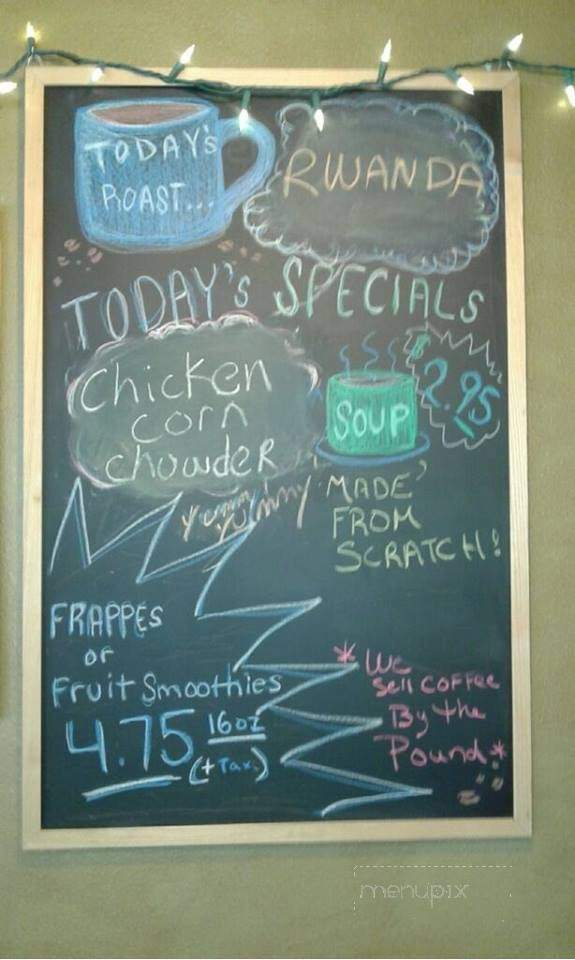 TODAY's
ROAST...
RWANDA
TODAY's SPECIALS
Chicken
corn
chowder
SOUP
$2.95
Yummy
Yummy
MADE
FROM
SCRATCH!
FRAPPES
or
Fruit Smoothies
4.75 16oz
(+ Tax.)
* We
Sell COFFEE
By the
Pound *
menupix